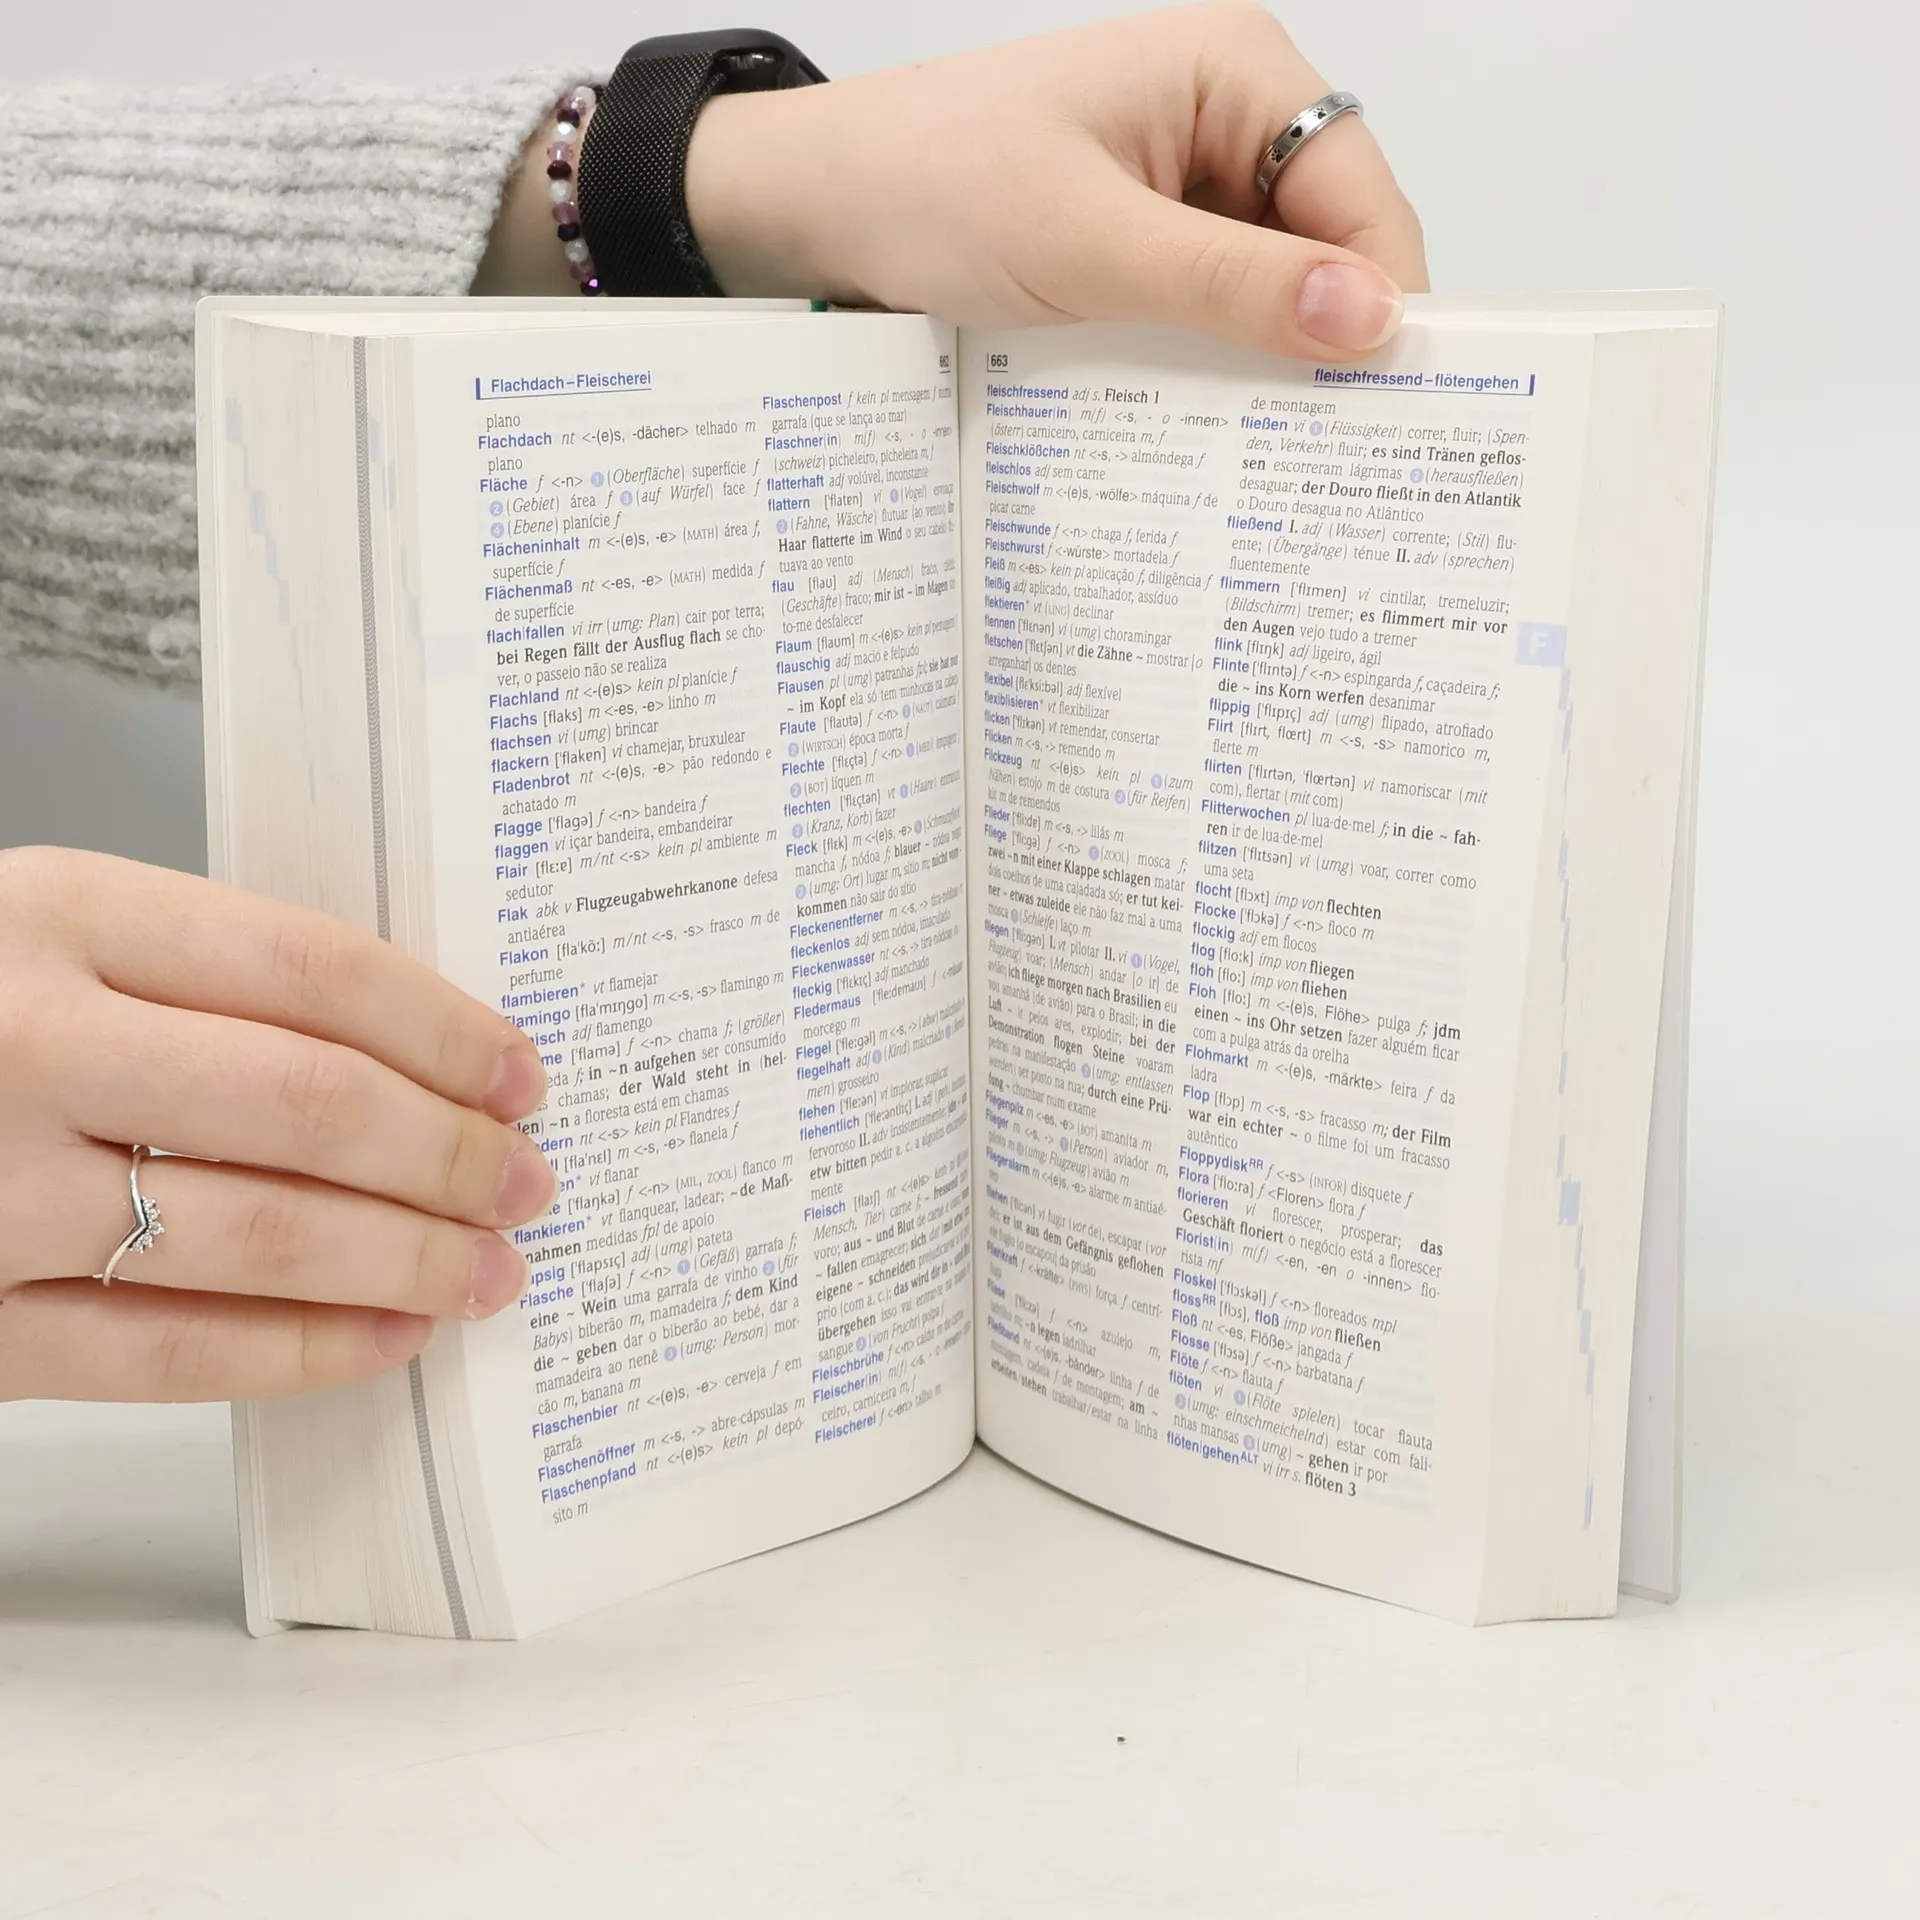 Flachdach–Fleischerei
662
plano
Flachdach nt <-(e)s, -dächer> telhado m
plano
Fläche f <-n> 1 (Oberfläche) superfície f
2 (Gebiet) área f 3 (auf Würfel) face f
4 (Ebene) planície f
Flächeninhalt m <-(e)s, -e> (MATH) área f,
superfície f
Flächenmaß nt <-es, -e> (MATH) medida f
de superfície
flach|fallen vi irr (umg: Plan) cair por terra;
bei Regen fällt der Ausflug flach se cho-
ver, o passeio não se realiza
Flachland nt <-(e)s> kein pl planície f
Flachs [flaks] m <-es, -e> linho m
flachsen vi (umg) brincar
flackern ['flakɐn] vi chamejar, bruxulear
Fladenbrot nt <-(e)s, -e> pão redondo e
achatado m
Flagge ['flagə] f <-n> bandeira f
flaggen vi içar bandeira, embandeirar
Flair [flɛːɐ] m/nt <-s> kein pl ambiente m
sedutor
Flak abk v Flugzeugabwehrkanone defesa
antiaérea
Flakon [fla'kõː] m/nt <-s, -s> frasco m de
perfume
flambieren* vt flamejar
Flamingo [fla'mɪŋgo] m <-s, -s> flamingo m
isch adj flamengo
me ['flamə] f <-n> chama f; (größer)
eda f; in ~n aufgehen ser consumido
chamas; der Wald steht in (hel-
len) ~n a floresta está em chamas
dern nt <-s> kein pl Flandres f
[fla'nɛl] m <-s, -e> flanela f
en* vi flanar
['flaŋkə] f <-n> (MIL, ZOOL) flanco m
flankieren* vt flanquear, ladear; ~de Maß-
nahmen medidas fpl de apoio
psig ['flapsɪç] adj (umg) pateta
Flasche ['flaʃə] f <-n> 1 (Gefäß) garrafa f;
eine ~ Wein uma garrafa de vinho 2 (für
Babys) biberão m, mamadeira f; dem Kind
die ~ geben dar o biberão ao bebé, dar a
mamadeira ao nenê 3 (umg: Person) mor-
cão m, banana m
Flaschenbier nt <-(e)s, -e> cerveja f em
garrafa
Flaschenöffner m <-s, -> abre-cápsulas m
Flaschenpfand nt <-(e)s> kein pl depó-
sito m
Flaschenpost f kein pl mensagem f numa
garrafa (que se lança ao mar)
Flaschner(in) m(f) <-s, - o -innen>
(schweiz) picheleiro, picheleira m, f
flatterhaft adj volúvel, inconstante
flattern ['flatɐn] vi 1 (Vogel)
2 (Fahne, Wäsche) flutuar (ao vento); ihr
Haar flatterte im Wind o seu cabelo flu-
tuava ao vento
flau [flau] adj (Mensch) fraco,
(Geschäfte) fraco; mir ist ~ im Magen
to-me desfalecer
Flaum [flaum] m <-(e)s> kein pl
flauschig adj macio e felpudo
Flausen pl (umg) patranhas fpl; sie hat nur
~ im Kopf ela só tem minhocas na cabeça
Flaute ['flautə] f <-n> 1 (NAUT) calmaria f
2 (WIRTSCH) época morta f
Flechte ['flɛçtə] f <-n> 1 (MED) impigem f
2 (BOT) líquen m
flechten ['flɛçtən] vt 1 (Haare)
2 (Kranz, Korb) fazer
Fleck [flɛk] m <-(e)s, -e> 1 (Schmutzfleck)
mancha f, nódoa f; blauer ~ nódoa negra
2 (umg: Ort) lugar m, sítio m; nicht vom ~
kommen não sair do sítio
Fleckenentferner m <-s, -> tira-nódoas m
fleckenlos adj sem nódoa, imaculado
Fleckenwasser nt <-s, -> tira-nódoas m
fleckig ['flɛkɪç] adj manchado
Fledermaus ['fleːdɐmaus] f
morcego m
Flegel ['fleːgəl] m <-s, -> (abw) malcriado m
flegelhaft adj 1 (Kind) malcriado 2 (Beneh-
men) grosseiro
flehen ['fleːən] vi implorar, suplicar
flehentlich ['fleːəntlɪç] I. adj
fervoroso II. adv insistentemente; jdn ~ um
etw bitten pedir a. c. a alguém
mente
Fleisch [flaɪʃ] nt <-(e)s> kein pl
Mensch, Tier) carne f; ~ fressend
voro; aus ~ und Blut de carne e osso; vom
~ fallen emagrecer; sich dat
eigene ~ schneiden
prio (com a. c.); das wird dir in ~ und Blut
übergehen isso vai entrar-te na
sangue 2 (von Frucht) polpa f
Fleischbrühe f <-n> caldo m de carne
Fleischer(in) m(f) <-s, - o -innen>
ceiro, carniceira m, f
Fleischerei f <-en> talho m
663
fleischfressend–flötengehen
fleischfressend adj s. Fleisch 1
Fleischhauer(in) m(f) <-s, - o -innen>
(österr) carniceiro, carniceira m, f
Fleischklößchen nt <-s, -> almôndega f
fleischlos adj sem carne
Fleischwolf m <-(e)s, -wölfe> máquina f de
picar carne
Fleischwunde f <-n> chaga f, ferida f
Fleischwurst f <-würste> mortadela f
Fleiß m <-es> kein pl aplicação f, diligência f
fleißig adj aplicado, trabalhador, assíduo
flektieren* vt (LING) declinar
flennen ['flɛnən] vi (umg) choramingar
fletschen ['flɛtʃən] vt die Zähne ~ mostrar |o
arreganhar| os dentes
flexibel [flɛ'ksiːbəl] adj flexível
flexibilisieren* vt flexibilizar
flicken ['flɪkən] vt remendar, consertar
Flicken m <-s, -> remendo m
Flickzeug nt <-(e)s> kein pl 1 (zum
Nähen) estojo m de costura 2 (für Reifen)
kit m de remendos
Flieder ['fliːdɐ] m <-s, -> lilás m
Fliege ['fliːgə] f <-n> 1 (ZOOL) mosca f;
zwei ~n mit einer Klappe schlagen matar
dois coelhos de uma cajadada só; er tut kei-
ner ~ etwas zuleide ele não faz mal a uma
mosca 2 (Schleife) laço m
fliegen ['fliːgən] I. vt pilotar II. vi 1 (Vogel,
Flugzeug) voar; (Mensch) andar |o ir| de
avião; ich fliege morgen nach Brasilien eu
vou amanhã (de avião) para o Brasil; in die
Luft ~ ir pelos ares, explodir; bei der
Demonstration flogen Steine voaram
pedras na manifestação 2 (umg: entlassen
werden) ser posto na rua; durch eine Prü-
fung ~ chumbar num exame
Fliegenpilz m <-es, -e> (BOT) amanita m
Flieger m <-s, -> 1 (Person) aviador m,
piloto m 2 (umg: Flugzeug) avião m
Fliegeralarm m <-(e)s, -e> alarme m antiaé-
reo
fliehen ['fliːən] vi fugir (vor de), escapar (vor
de); er ist aus dem Gefängnis geflohen
ele fugiu |o escapou| da prisão
Fliehkraft f <-kräfte> (PHYS) força f centrí-
fuga
Fliese ['fliːzə] f <-n> azulejo m,
ladrilho m; ~n legen ladrilhar
Fließband nt <-(e)s, -bänder> linha f de
montagem, cadeia f de montagem; am ~
arbeiten/stehen trabalhar/estar na linha
de montagem
fließen vi 1 (Flüssigkeit) correr, fluir; (Spen-
den, Verkehr) fluir; es sind Tränen geflos-
sen escorreram lágrimas 2 (herausfließen)
desaguar; der Douro fließt in den Atlantik
o Douro desagua no Atlântico
fließend I. adj (Wasser) corrente; (Stil) flu-
ente; (Übergänge) ténue II. adv (sprechen)
fluentemente
flimmern ['flɪmɐn] vi cintilar, tremeluzir;
(Bildschirm) tremer; es flimmert mir vor
den Augen vejo tudo a tremer
flink [flɪŋk] adj ligeiro, ágil
Flinte ['flɪntə] f <-n> espingarda f, caçadeira f;
die ~ ins Korn werfen desanimar
flippig ['flɪpɪç] adj (umg) flipado, atrofiado
Flirt [flɪrt, flœrt] m <-s, -s> namorico m,
flerte m
flirten ['flɪrtən, 'flœrtən] vi namoriscar (mit
com), flertar (mit com)
Flitterwochen pl lua-de-mel f; in die ~ fah-
ren ir de lua-de-mel
flitzen ['flɪtsən] vi (umg) voar, correr como
uma seta
flocht [flɔxt] imp von flechten
Flocke ['flɔkə] f <-n> floco m
flockig adj em flocos
flog [floːk] imp von fliegen
floh [floː] imp von fliehen
Floh [floː] m <-(e)s, Flöhe> pulga f; jdm
einen ~ ins Ohr setzen fazer alguém ficar
com a pulga atrás da orelha
Flohmarkt m <-(e)s, -märkte> feira f da
ladra
Flop [flɔp] m <-s, -s> fracasso m; der Film
war ein echter ~ o filme foi um fracasso
autêntico
Floppydisk RR f <-s> (INFOR) disquete f
Flora ['floːra] f <Floren> flora f
florieren vi florescer, prosperar; das
Geschäft floriert o negócio está a florescer
Florist(in) m(f) <-en, -en o -innen> flo-
rista mf
Floskel ['flɔskəl] f <-n> floreados mpl
floss RR [flɔs], floß imp von fließen
Floß nt <-es, Flöße> jangada f
Flosse ['flɔsə] f <-n> barbatana f
Flöte f <-n> flauta f
flöten vi 1 (Flöte spielen) tocar flauta
2 (umg: einschmeichelnd) estar com fali-
nhas mansas 3 (umg) ~ gehen ir por
flöten|gehen ALT vi irr s. flöten 3
F